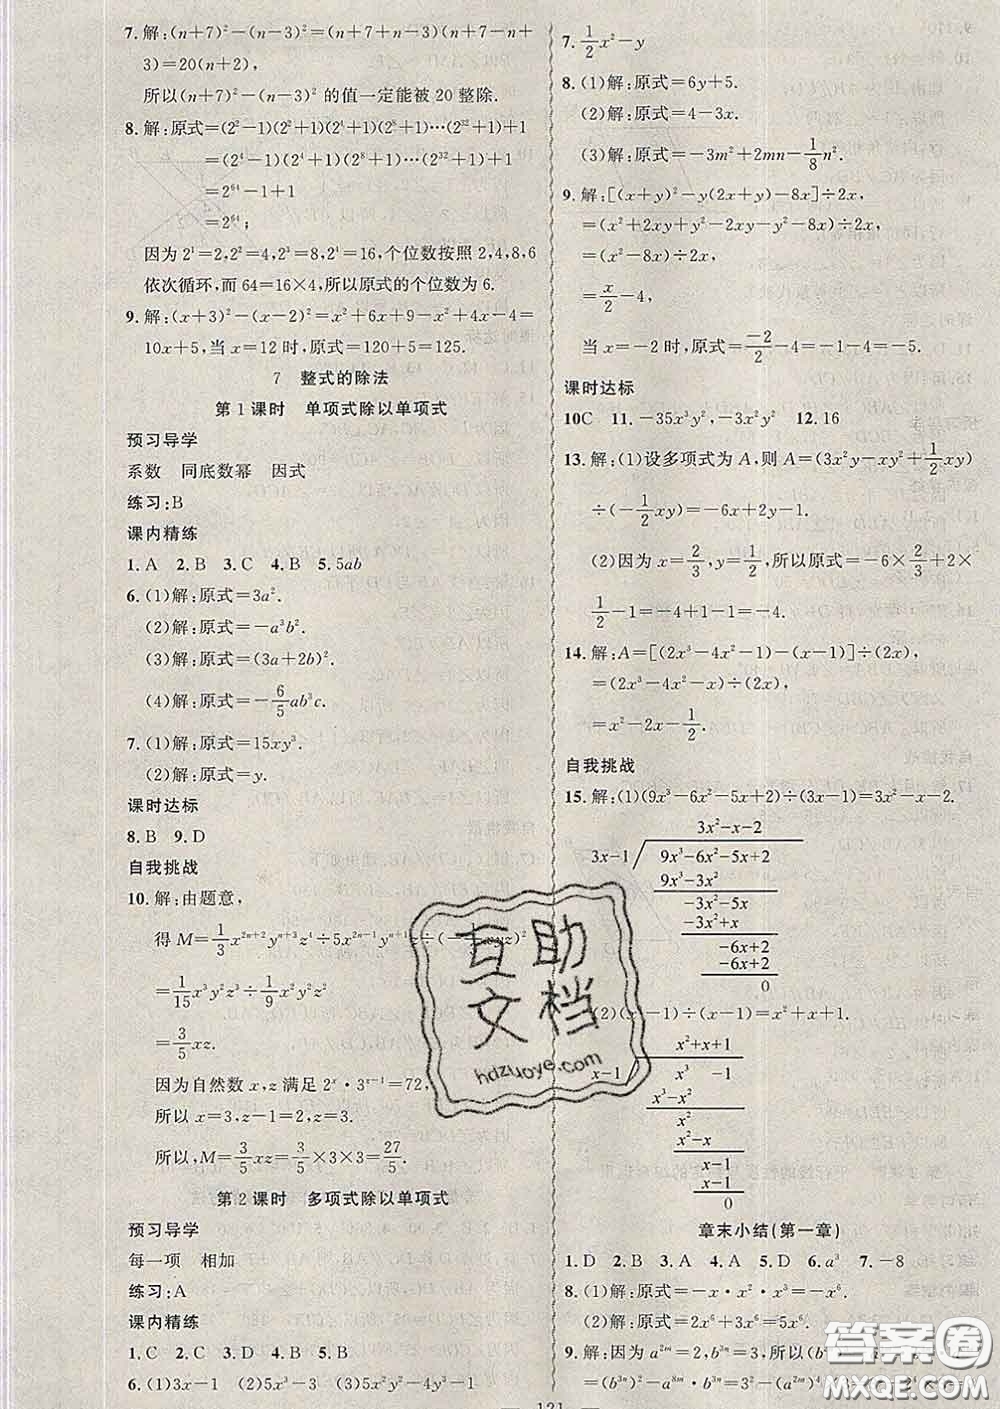 7. 解:(n+7)²-(n-3)²=(n+7+n-3)(n+7-n+
3)=20(n+2),
所以(n+7)²-(n-3)² 的值一定能被 20 整除.
8. 解:原式=(2²-1)(2²+1)(2⁴+1)…(2³²+1)+1
=(2⁴-1)(2⁴+1)(2⁸+1)…(2³²+1)+1
=2⁶⁴-1+1
=2⁶⁴;
因为 2¹=2,2²=4,2³=8,2⁴=16,个位数按照 2,4,8,6
依次循环,而 64=16×4,所以原式的个位数为 6.
9. 解:(x+3)²-(x-2)²=x²+6x+9-x²+4x-4=
10x+5,当 x=12 时,原式=120+5=125.
7 整式的除法
第 1 课时 单项式除以单项式
预习导学
系数 同底数幂 因式
练习:B
课内精练
1. A 2. B 3. C 4. B 5. 5ab
6. (1)解:原式=3a².
(2)解:原式=-a³b².
(3)解:原式=(3a+2b)².
(4)解:原式=-6/5 ab³c.
7. (1)解:原式=15xy³.
(2)解:原式=y.
课时达标
8. B 9. D
自我挑战
10. 解:由题意,
得 M=1/3 x²ⁿ⁺²yⁿ⁺³z⁴÷5x²ⁿ⁻¹yⁿ⁺¹z÷(-1/3 xyz)²
=1/15 x³y²z³÷1/9 x²y²z²
=3/5 xz.
因为自然数 x,z 满足 2ˣ·3ᶻ⁻¹=72,
所以 x=3,z-1=2,z=3.
所以,M=3/5 xz=3/5×3×3=27/5.
第 2 课时 多项式除以单项式
预习导学
每一项 相加
练习:A
课内精练
1. C 2. C 3. D 4. B 5. B
6. (1)3x-1 (2)5x³-2x² (3)5x³y²-4y³-1
7. 1/2 x²-y
8. (1)解:原式=6y+5.
(2)解:原式=4-3x.
(3)解:原式=-3m²+2mn-1/8 n².
9. 解:[(x+y)²-y(2x+y)-8x]÷2x,
=(x²+2xy+y²-2xy-y²-8x)÷2x,
=(x²-8x)÷2x,
=x/2-4,
当 x=-2 时,原式=-2/2-4=-1-4=-5.
课时达标
10C 11. -35x³y²,-3x²y² 12. 16
13. 解:(1)设多项式为 A,则 A=(3x²y-xy²+1/2 xy)
÷(-1/2 xy)=-6x+2y-1.
(2)因为 x=2/3,y=1/2,所以原式=-6×2/3+2×
1/2-1=-4+1-1=-4.
14. 解:A=[(2x³-4x²-1)-(x-1)]÷(2x),
=(2x³-4x²-x)÷(2x),
=x²-2x-1/2.
自我挑战
15. 解:(1)(9x³-6x²-5x+2)÷(3x-1)=3x²-x-2.
3x²-x-2
3x-1 9x³-6x²-5x+2
9x³-3x²
-3x²-5x
-3x²+x
-6x+2
-6x+2
0
(2)(x³-1)÷(x-1)=x²+x+1.
x²+x+1
x-1 x³ -1
x³-x²
x²
x²-x
x-1
x-1
0
章末小结(第一章)
1. D 2. B 3. A 4. A 5. D 6. a³ 7. -8
8. (1)解:原式=-x·x²·x³=-x⁶.
(2)解:原式=2x⁶+3x⁶=5x⁶.
121
互助
文档
hdzuoye.com
答案圈
MXQE.COM